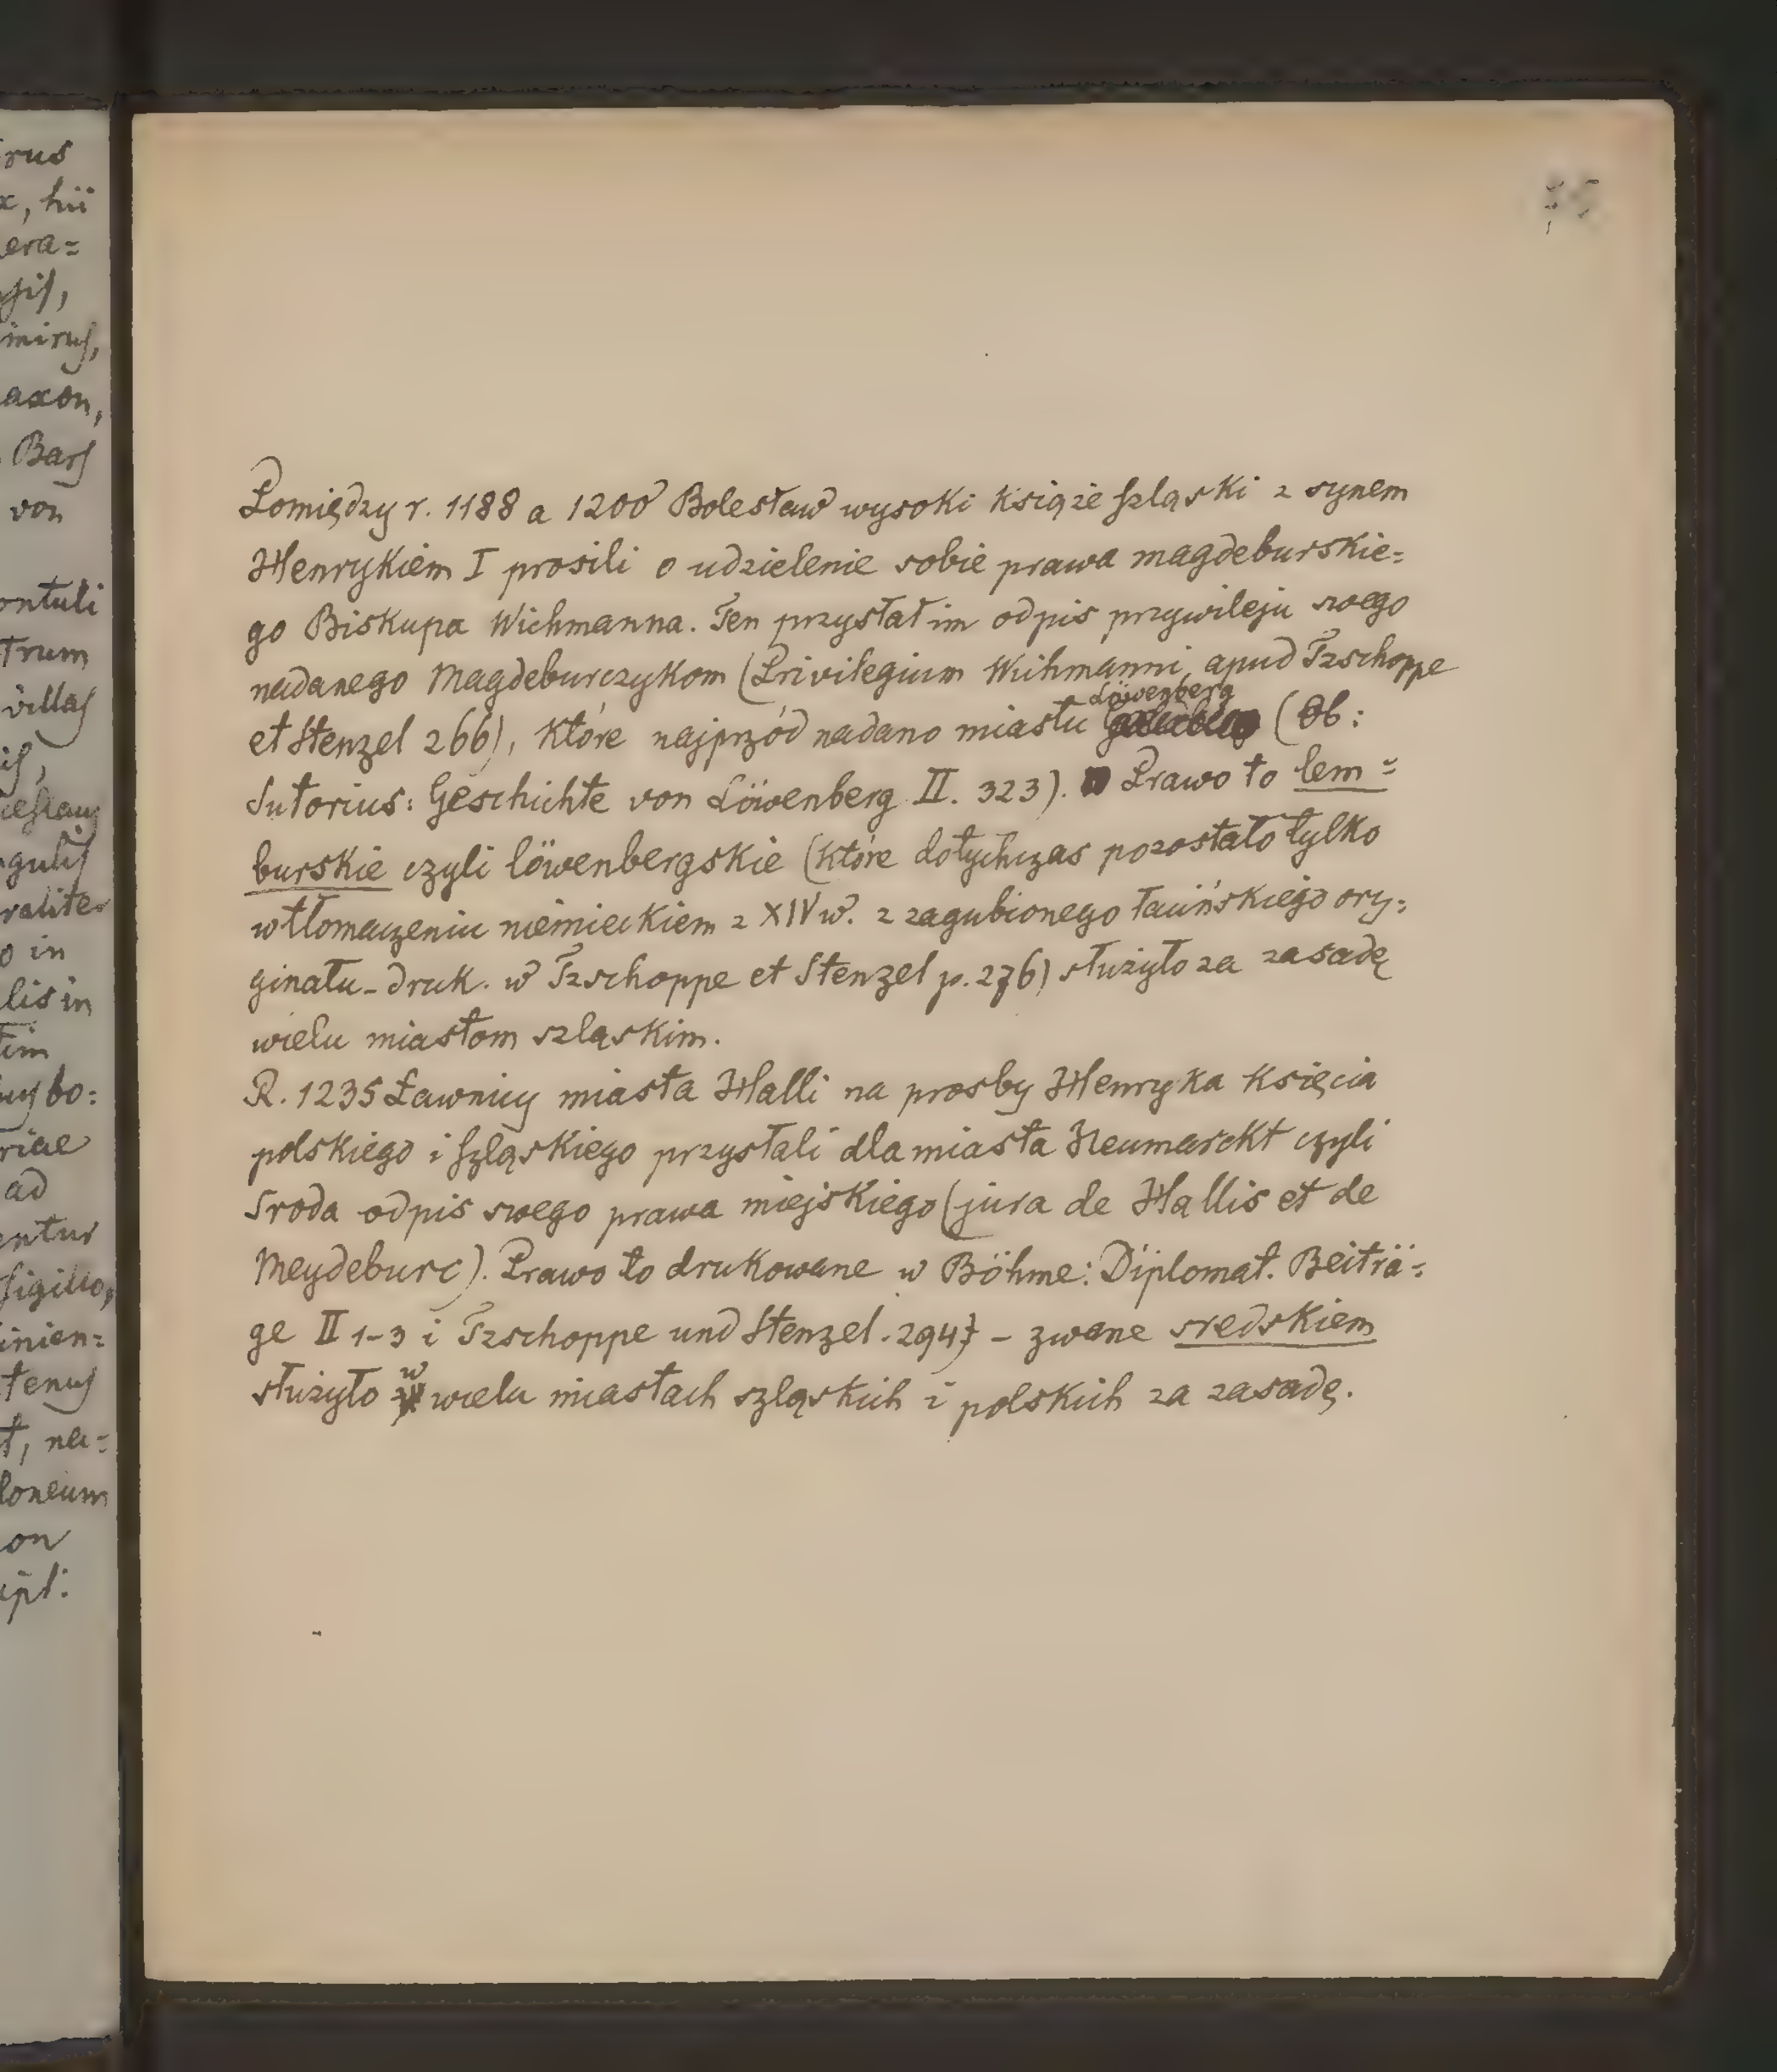 Pomiędzy r. 1188 a 1200 Bolesław wysoki książe szląski z synem
Henrykiem I prosili o udzielenie sobie prawa magdeburskie=
go Biskupa Wichmanna. Ten przysłał im odpis przywileju swego
nadanego Magdeburczykom (Privilegium Wichmanni, apud Tzschoppe
et Stenzel 266), które najprzód nadano miastu Löwenberg (Ob:
Sutorius: Geschichte von Löwenberg II. 323). Prawo to lem=
burskie czyli löwenbergskie (które dotychczas pozostało tylko
w tłomaczeniu niemieckiem z XIV w. z zagubionego łacińskiego ory=
ginału - druk. w Tzschoppe et Stenzel p. 276) służyło za zasadę
wielu miastom szląskim.
R. 1235 Ławnicy miasta Halli na prosby Henryka Księcia
polskiego i szląskiego przysłali dla miasta Neumarckt czyli
Sroda odpis swego prawa miejskiego (jura de Hallis et de
Meydeburc). Prawo to drukowane w Böhme: Diplomat. Beiträ=
ge II 1-3 i Tzschoppe und Stenzel. 294} - zwane sredskiem
służyło w wielu miastach szląskich i polskich za zasadę.
rus
x, hii
era=
gis,
mirus,
axon,
Bars
von
ontuli
trum
villas
is,
ceslaus
gulis
raliter
o in
lis in
tim
bo:
riae
ad
entur
sigillo,
inien=
tenus
t, na=
loneum
on
ipl: